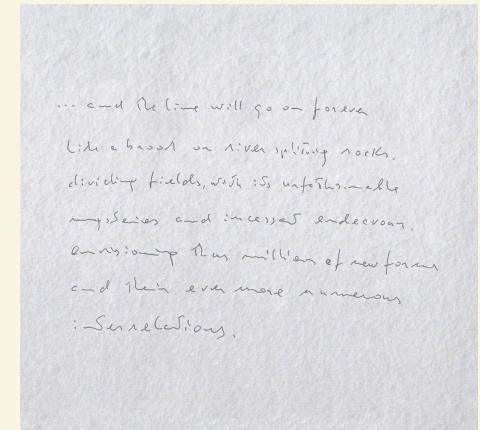 ... and the line will go on forever
like a brook or river splitting rocks,
dividing fields, with its unfathomable
mysteries and incessant endeavour,
envisioning thus millions of new forms
and their ever more numerous
interrelations.